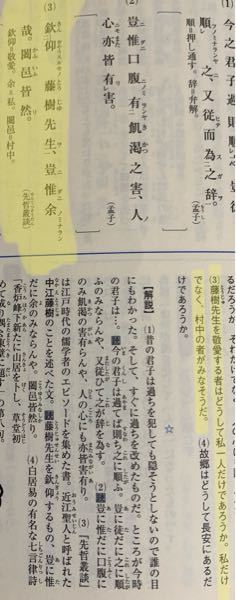 今之君子過則順之。豈徒
順之、又従而為之辞。
順＝押し通す。辞＝弁解。
〔孟子〕
(2) 豈惟口腹有飢渇之害。人
心亦皆有害。
〔孟子〕
(3) 欽仰藤樹先生、豈惟余
哉。闔邑皆然。
欽仰＝敬愛。余＝私。闔邑＝村中。
〔先哲叢談〕
(3) 藤樹先生を敬愛する者はどうして私一人だけであろうか。私だけ
でなく、村中の者がみなそうだ。
(4) 故郷はどうして長安にあるだ
けであろうか。
☆
【解説】 (1) 昔の君子は過ちを犯しても隠そうとしないので誰の目
にもわかった。そして、すぐに過ちを改めたものだ。ところが今時
の君子は…。 読 今の君子は過てば則ち之に順ふ。豈に徒だに之に順
ふのみならんや、又従ひて之が辞を為す。 (2) 読 豈に惟だに口腹に
のみ飢渇の害有らんや。人の心にも亦皆害有り。 (3) 『先哲叢談』
は江戸時代の儒学者のエピソードを集めた書。近江聖人と呼ばれた
中江藤樹のことを述べた文。 読 藤樹先生を欽仰するもの、豈に惟
だに余のみならんや。闔邑皆然り。 (4) 白居易の有名な七言律詩
「香炉峰下新たに山居を卜し、草堂初